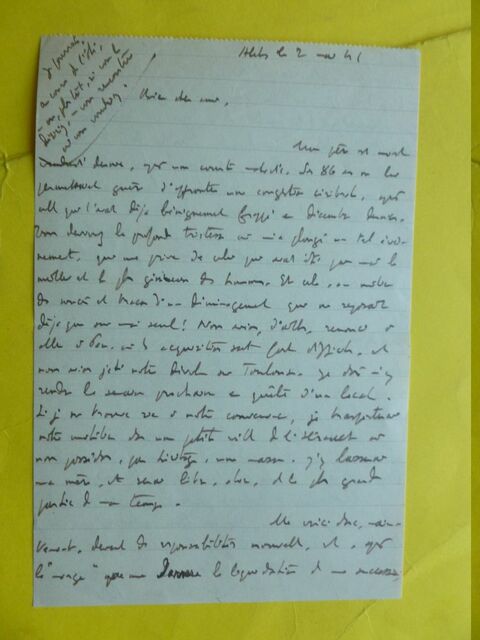 je pourrais
au cours de l'été,
- ou, plutôt, si vous le
désirez - vous rencontrer
le 2 mai 41
Mon cher ami,
Mon père est mort
dernier, après une courte maladie. Ses 86 ans ne lui
permettaient guère d'affronter une congestion cérébrale, après
celle qui l'avait déjà bénignement frappé en Décembre dernier.
Vous devinez la profonde tristesse où m'a plongé un tel évé-
nement, qui me prive de celui qui avait été pour moi le
meilleur et le plus généreux des hommes. Et cela, au milieu
des soucis et tracas d'un déménagement qui ne reposait
déjà que sur moi seul ! Nous avons, d'ailleurs, renoncé à
où les acquisitions sont fort difficiles, et
nous avons jeté notre dévolu sur Toulouse. Je dois m'y
rendre la semaine prochaine en quête d'un local.
Si je ne trouve rien à notre convenance, je transporterai
notre mobilier dans une petite ville de l'Hérault où
nous possédons, par héritage, une maison. J'y laisserai
ma mère, et serai libre, alors, de la plus grande
partie de mon temps.
Me voici donc, main-
tenant, devant des responsabilités nouvelles, et, après
le "congé" que me donnera la liquidation de ma succession,